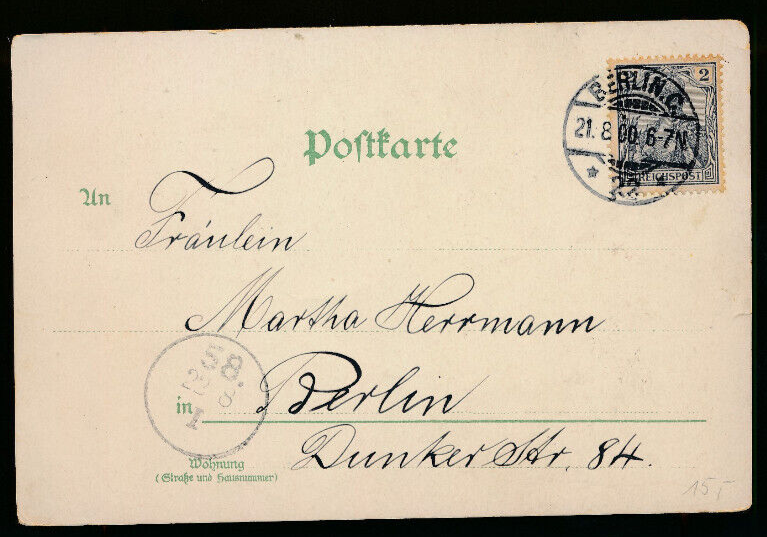 2
BERLIN. C.
21. 8. 00. 6-7N.
REICHSPOST
Postkarte
An
Fräulein
Martha Herrmann
in Berlin
Dunker Str. 84.
Wohnung
(Straße und Hausnummer)
15,-